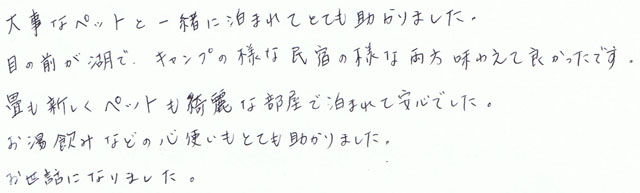 大事なペットと一緒に泊まれてとても助かりました。
目の前が湖で、キャンプの様な民宿の様な両方味わえて良かったです。
畳も新しくペットも綺麗な部屋で泊まれて安心でした。
お湯飲みなどの心使いもとても助かりました。
お世話になりました。